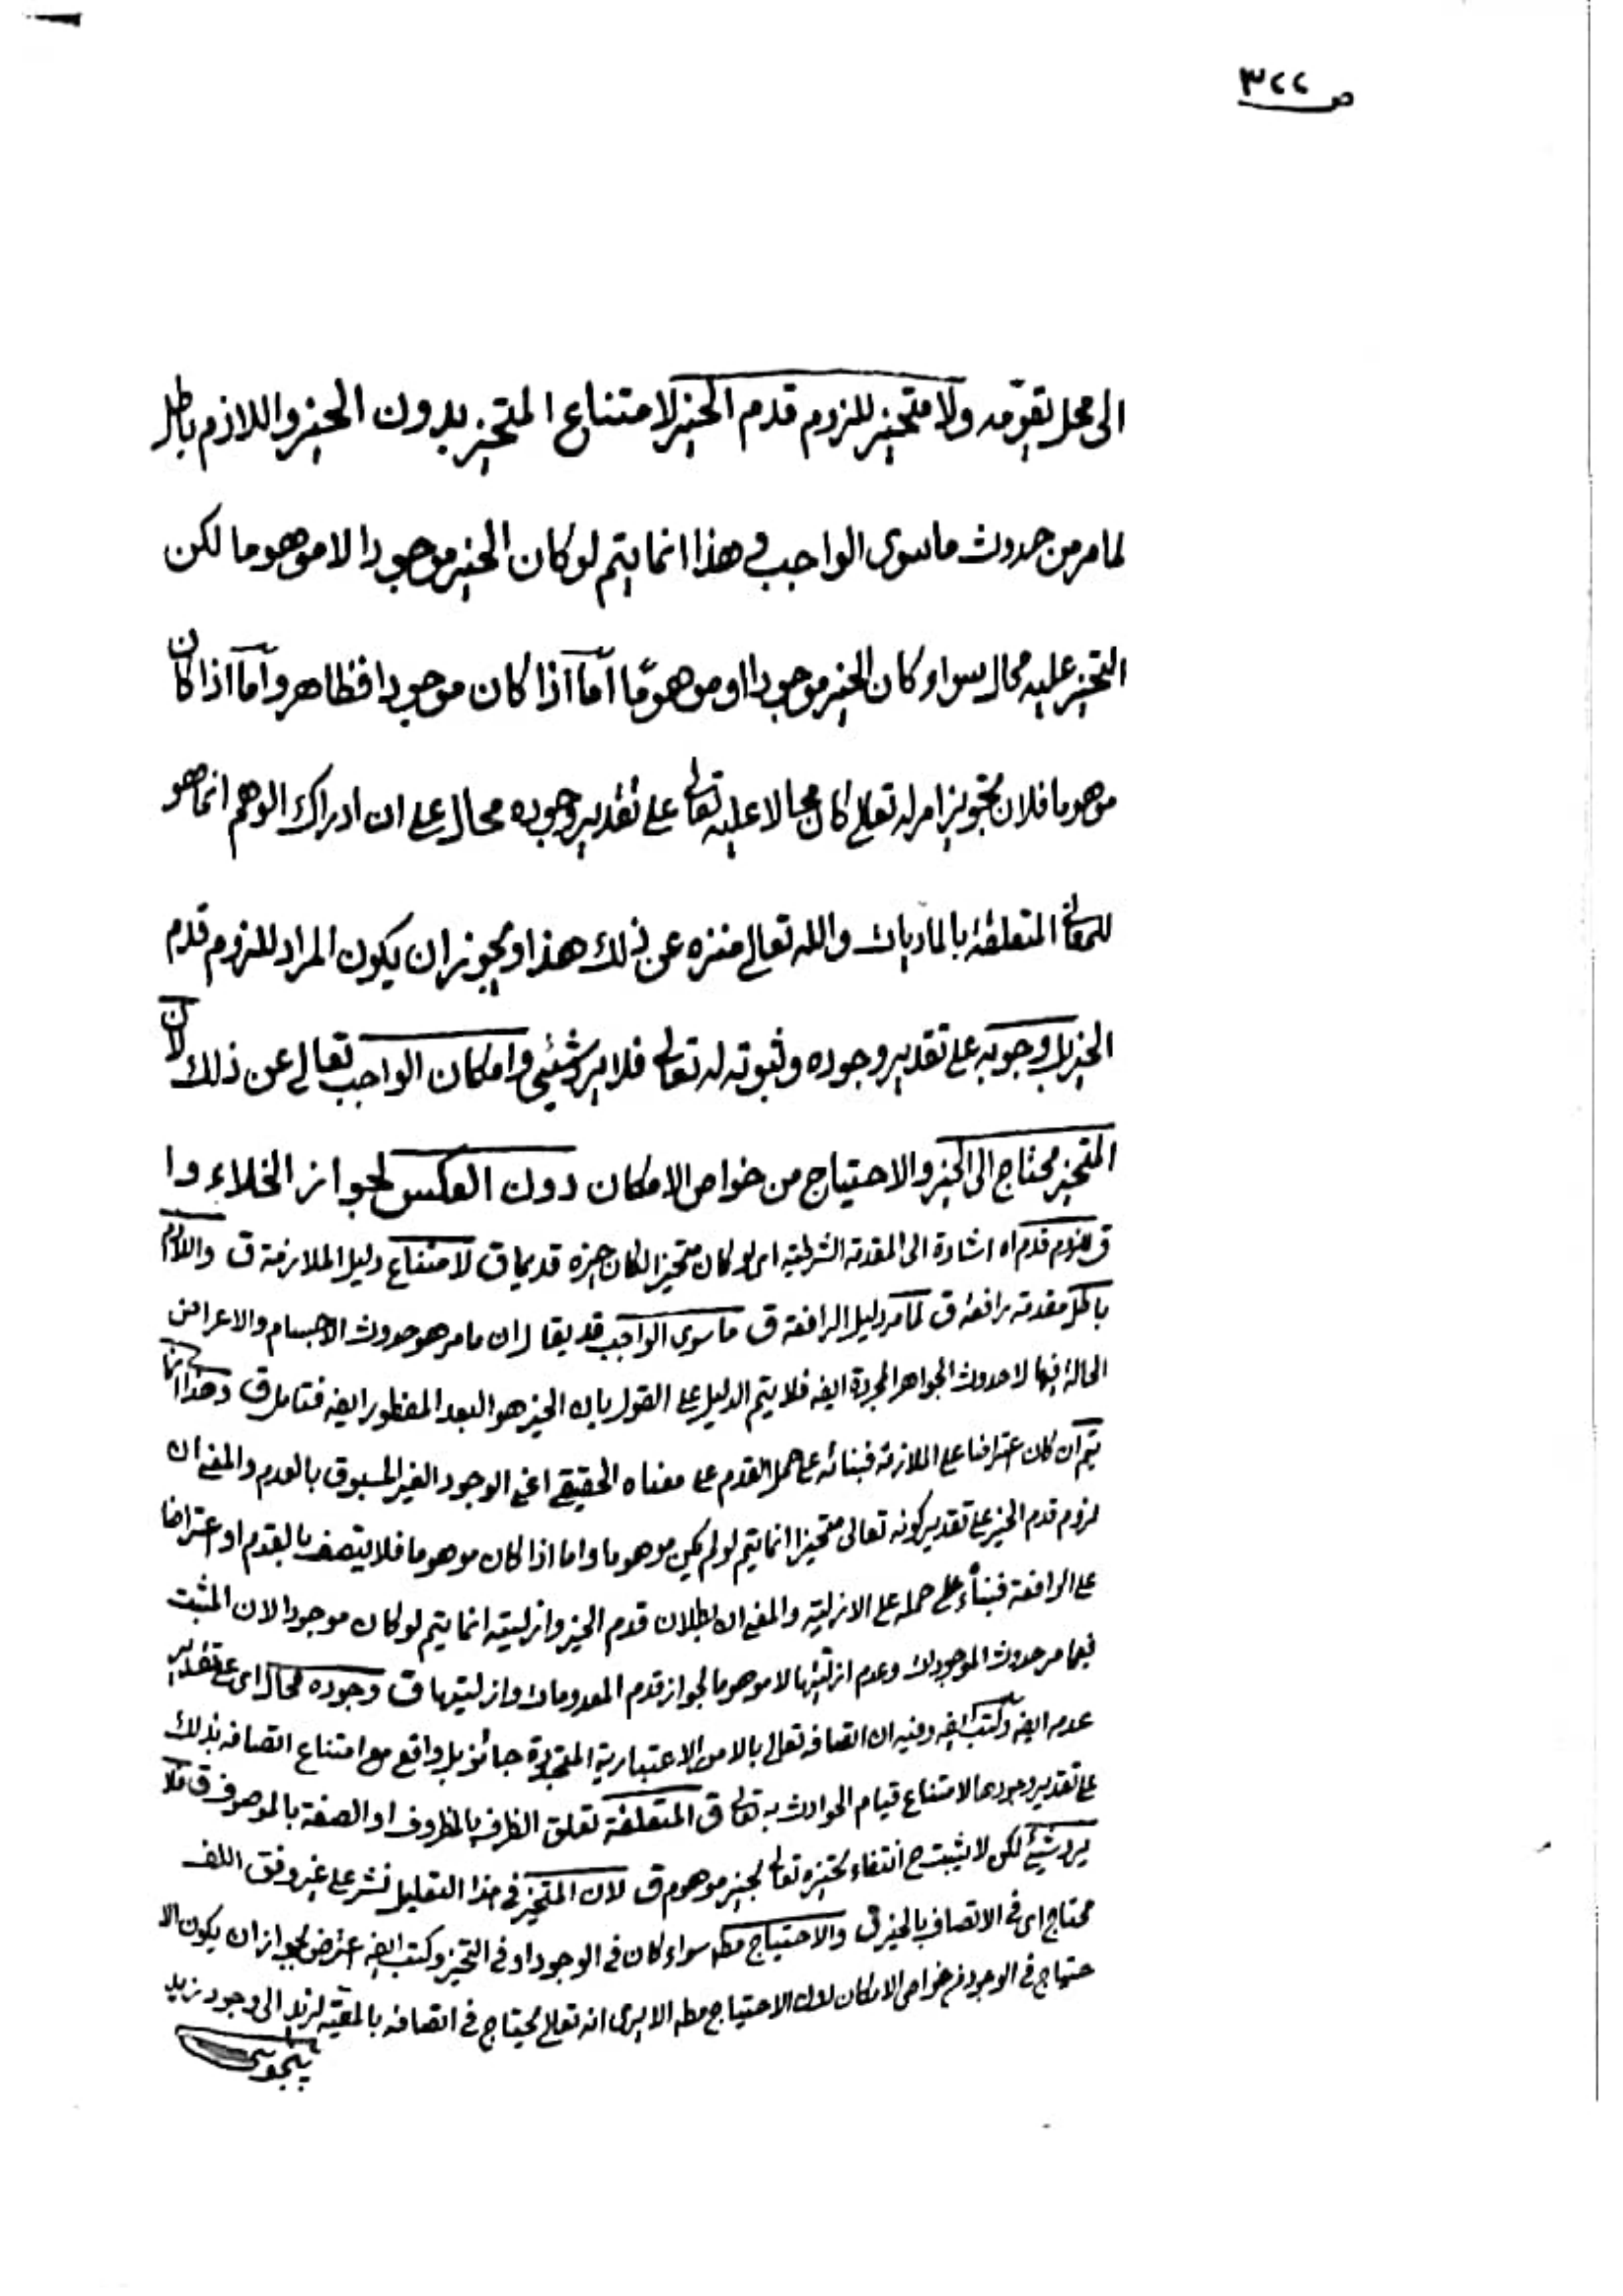 ص ٣٢٢
الى محل يقوّمه ولا متحيز للزوم قدم الحيز لامتناع المتحيز بدون الحيز واللازم باطل
لما مر من حدوث ماسوى الواجب وهذا انما يتم لو كان الحيز موجودا لا موهوما لكن
التحيز عليه محال سواء كان الحيز موجودا او موهومًا أمّا اذا كان موجودا فظاهر وأمّا اذا كان
موهوما فلان تجويز امر له تعالى كان محالا عليه تعالى على تقدير وجوده محال على ان ادراك الوهم انما هو
للمعانى المتعلقة بالماديات والله تعالى منزه عن ذلك هذا ويجوز ان يكون المراد للزوم قدم
الحيز بل وجوبه على تقدير وجوده وثبوته له تعالى فلا يرد شئي وامكان الواجب تعالى عن ذلك لان
المتحيز محتاج الى الحيز والاحتياج من خواص الامكان دون العكس لجواز الخلاء وا
ق للزوم قدم اه اشارة الى المقدمة الشرطية اى لو كان متحيزا لكان حيزه قديما ق لامتناع دليل الملازمة ق واللازم
باطل مقدمة رافعة ق لما مر دليل الرافعة ق ماسوى الواجب قد يقال ان ما مر هو حدوث الاجسام والاعراض
الحالة فيها لا حدوث الجواهر المجردة ايضه فلا يتم الدليل على القول بان الحيز هو البعد المفطور ايضه فتامل ق وهذا انما
يتم ان كان اعتراضا على الملازمة فبنائه على حمل القدم على معناه الحقيقي اعنى الوجود الغير المسبوق بالعدم والمعنى ان
لزوم قدم الحيز على تقدير كونه تعالى متحيزا انما يتم لو لم يكن موهوما واما اذا كان موهوما فلا يتصف بالقدم او اعتراضا
على الرافعة فبناءً على حمله على الازلية والمعنى ان بطلان قدم الحيز وازليته انما يتم لو كان موجودا لان المثبت
فيما مر حدوث الموجودات وعدم ازليتها لا موهوما لجواز قدم المعدومات وازليتها ق وجوده محال اى على تقدير
عدمه ايضه وكتب ايضه وفيه ان اتصافه تعالى بالامور الاعتبارية المتجددة جائز بل واقع مع امتناع اتصافه بذلك
على تقدير وجودها لامتناع قيام الحوادث به تعالى ق المتعلقة تعلق الظرف بالمظروف او الصفة بالموصوف ق فلا
يرد شيئ لكن لا يثبت ح انتفاء تحيزه تعالى بحيز موهوم ق لان المتحيز فى هذا التعليل نشر على غير وفق اللف
محتاج اى فى الاتصاف بالحيز ق والاحتياج مطه سواء كان فى الوجود او فى التحيز وكتب ايضه اعترض لجواز ان يكون الا
حتياج فى الوجود من خواص الامكان دون الاحتياج مطه الا يرى انه تعالى يحتاج فى اتصافه بالمعية لزيد الى وجود زيد